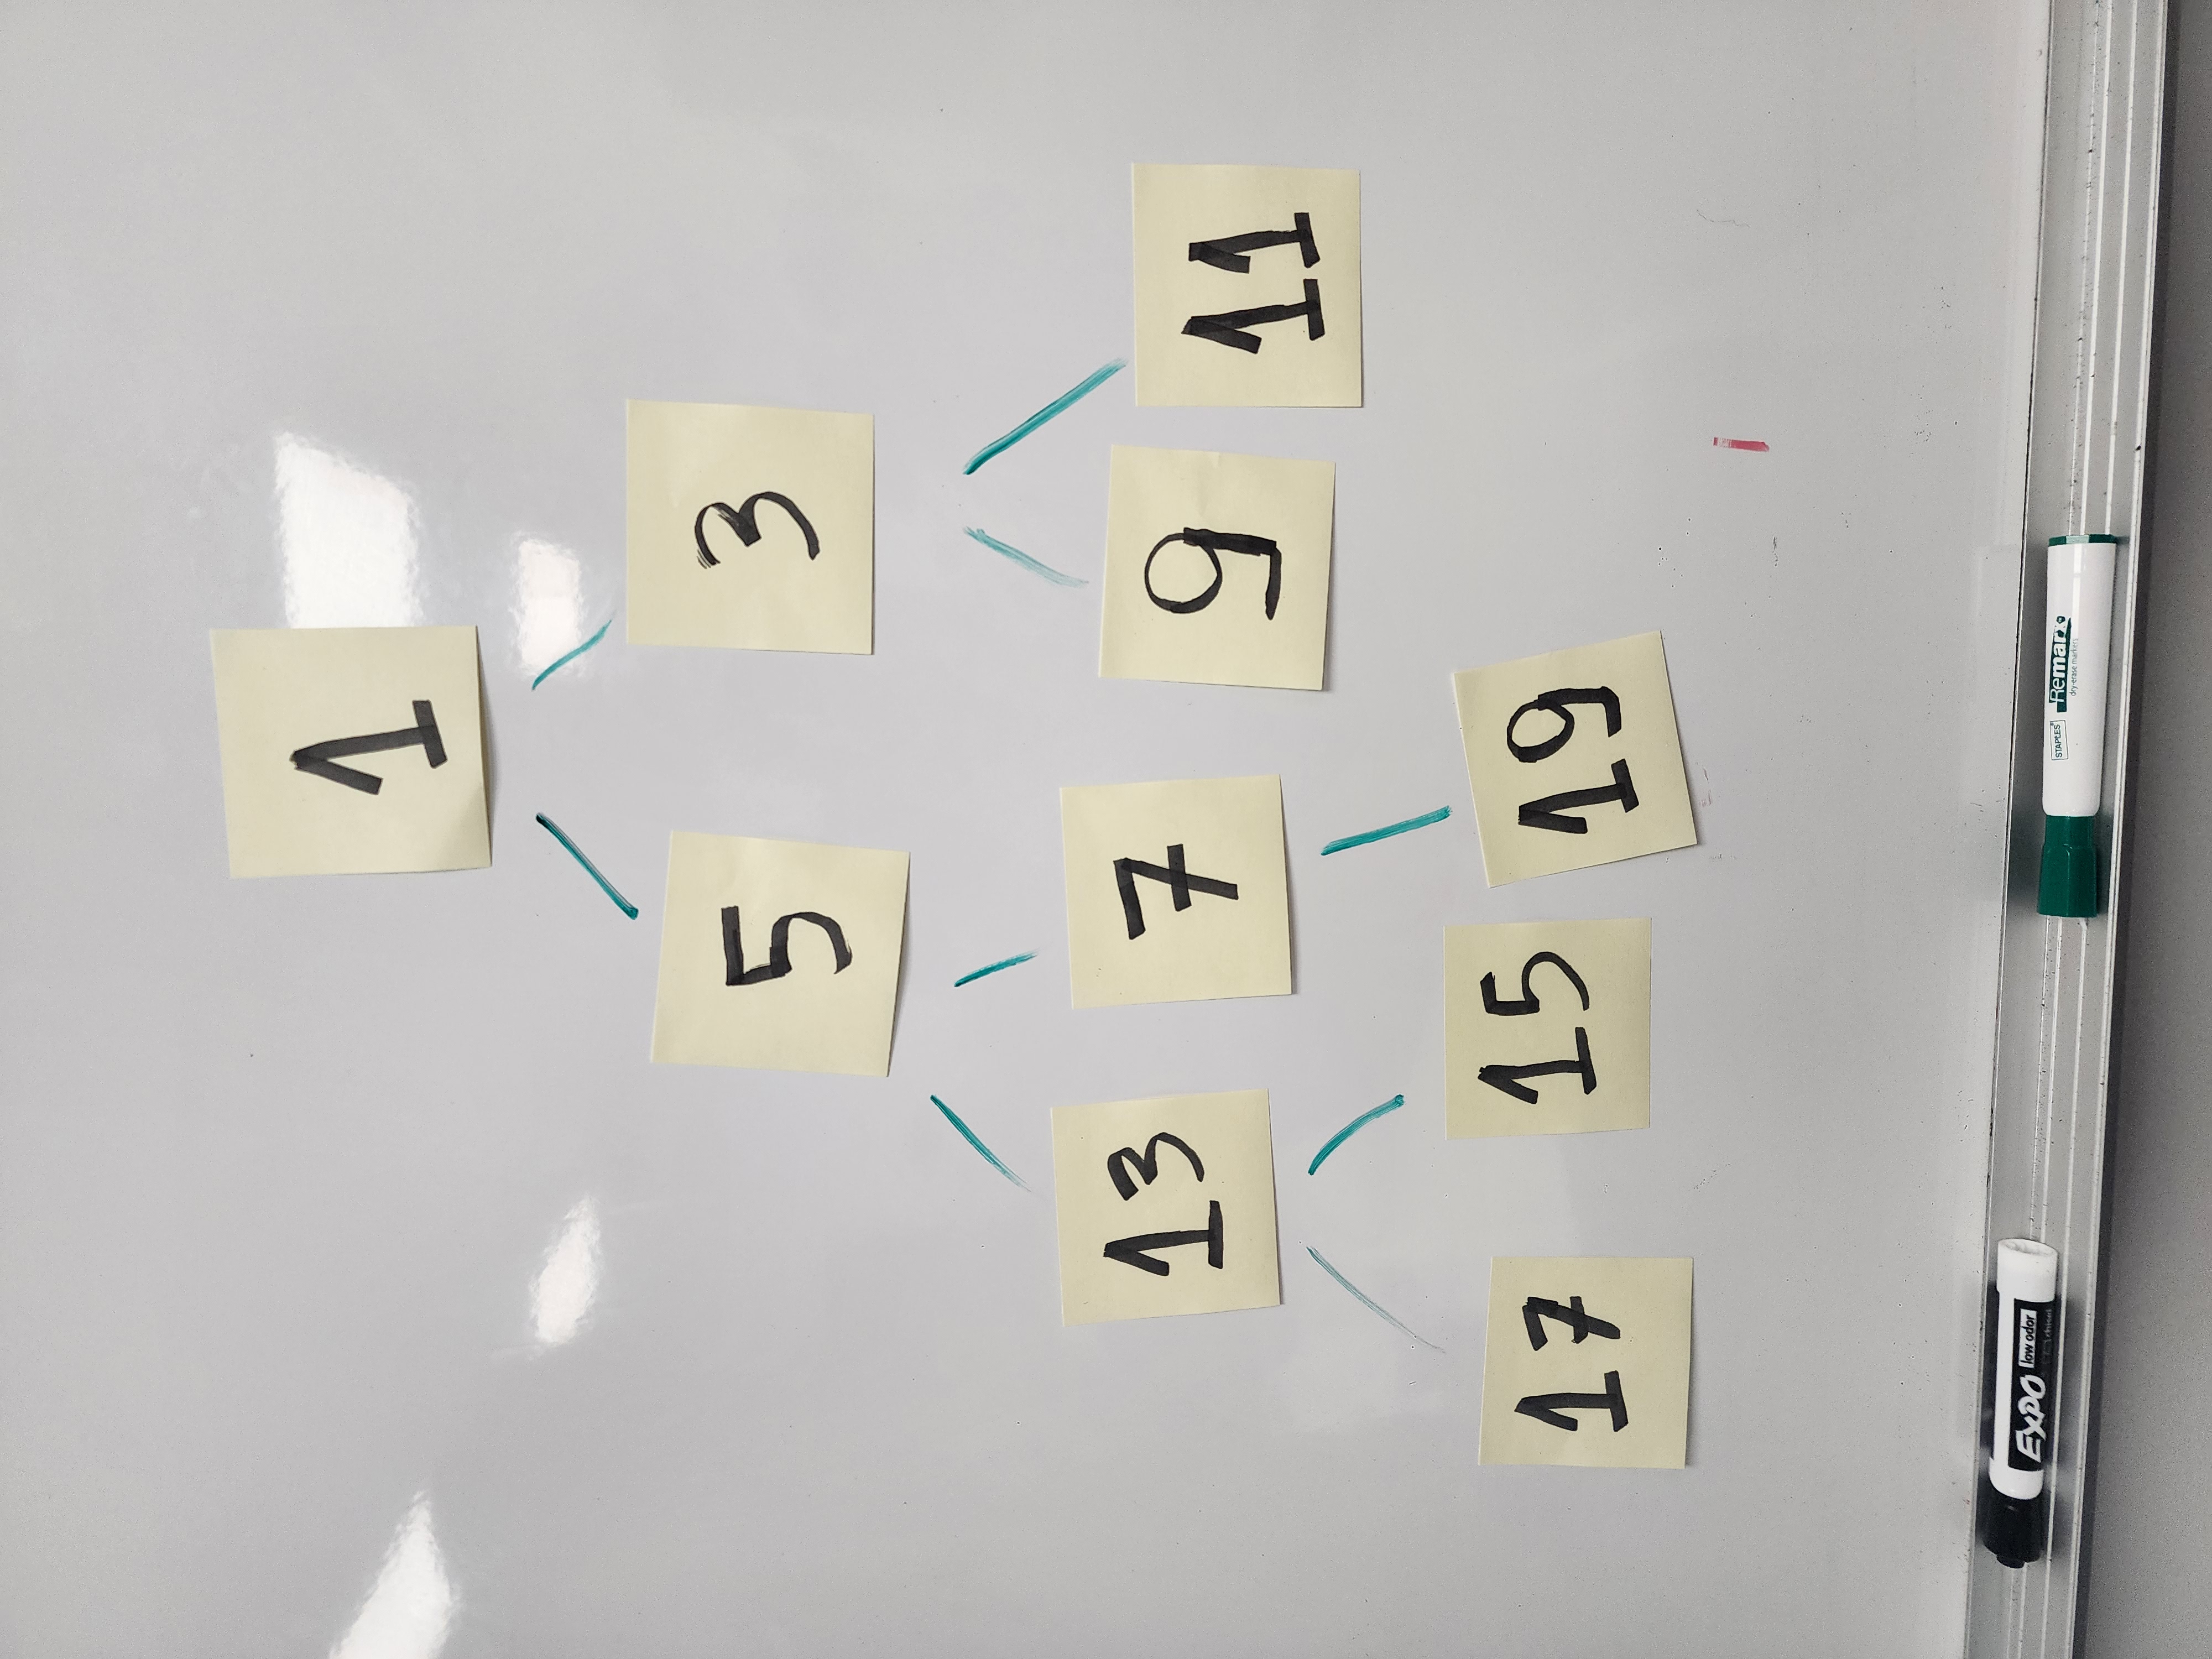 1
5 3
13 7 9 11
17 15 19
EXPO low odor
chisel
STAPLES Remarx
dry-erase markers